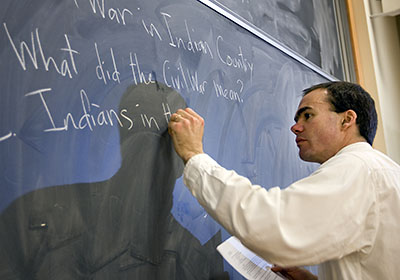 War in Indian Country
What did the Civil War mean?
Indians in th